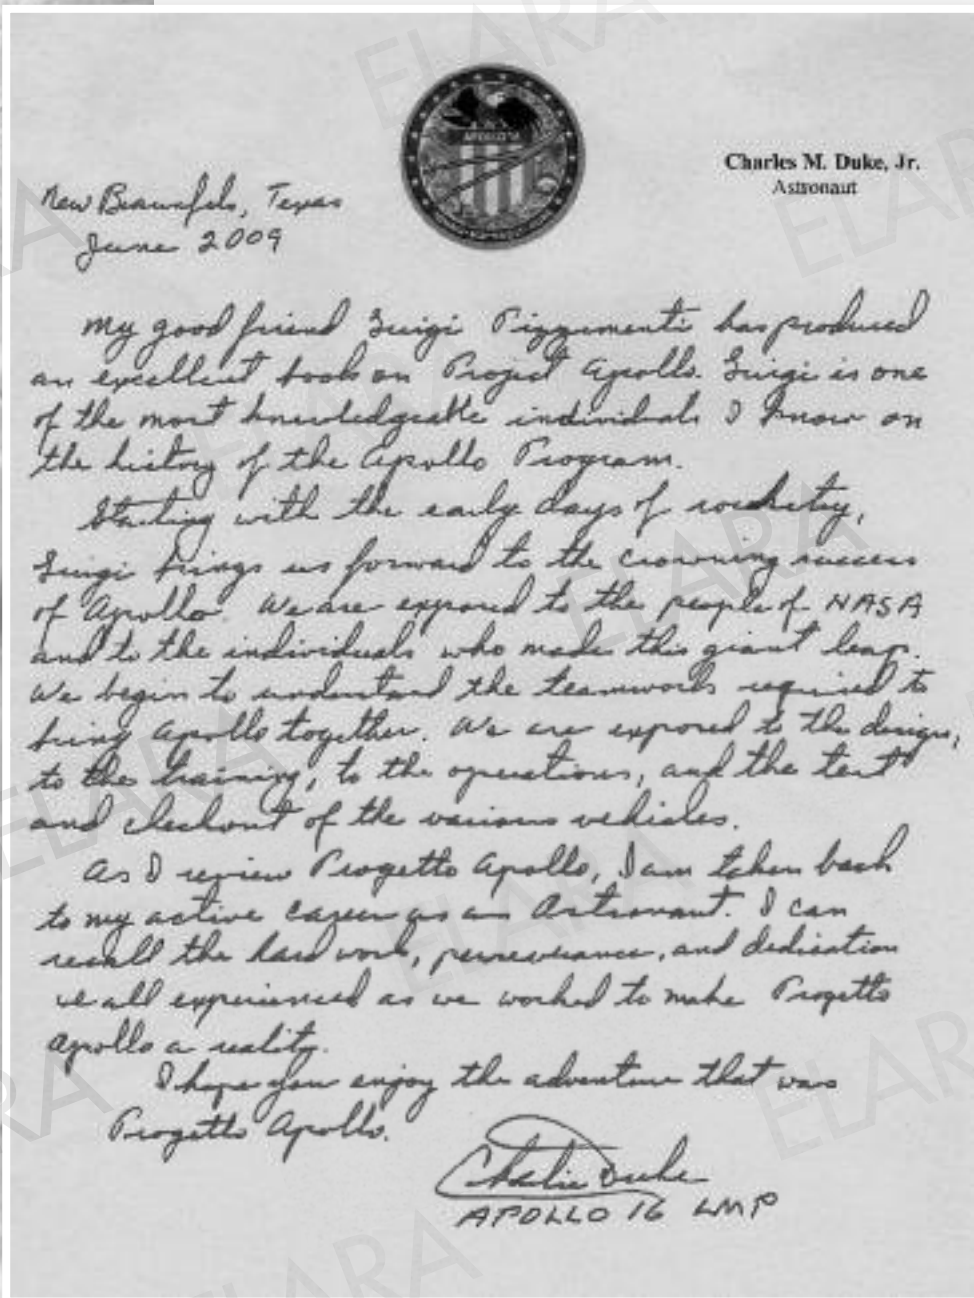 APOLLO 16
Charles M. Duke, Jr.
Astronaut
New Braunfels, Texas
June 2009
My good friend Luigi Pizzimenti has produced
an excellent book on Project Apollo. Luigi is one
of the most knowledgeable individuals I know on
the history of the Apollo Program.
Starting with the early days of rocketry,
Luigi brings us forward to the crowning success
of Apollo. We are exposed to the people of NASA
and to the individuals who made this giant leap.
We begin to understand the teamwork required to
bring Apollo together. We are exposed to the design,
to the training, to the operations, and the test
and checkout of the various vehicles.
As I review Progetto Apollo, I am taken back
to my active career as an Astronaut. I can
recall the hard work, perseverance, and dedication
we all experienced as we worked to make Progetto
Apollo a reality.
I hope you enjoy the adventure that was
Progetto Apollo.
Charlie Duke
APOLLO 16 LMP
ELARA
ELARA
ELARA
ELARA
ELARA
ELARA
ELARA